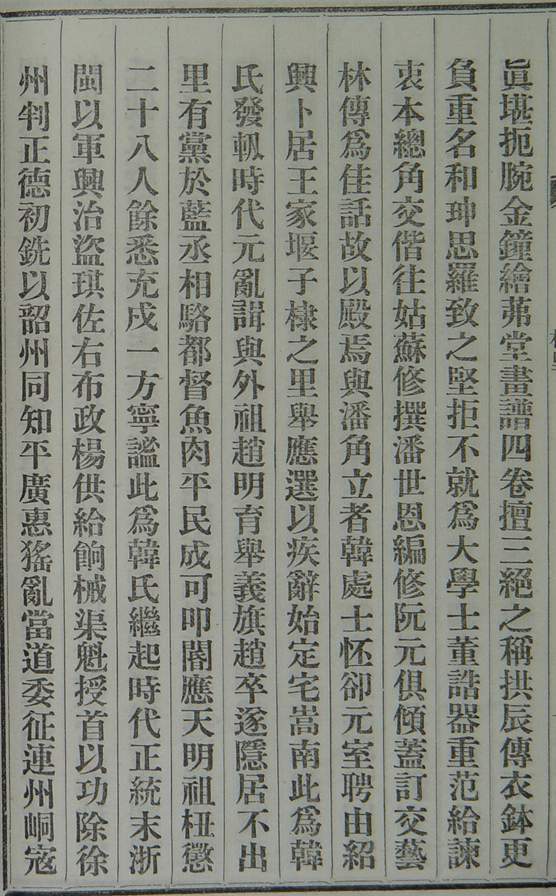 眞堪扼腕金鐘繪茀堂畫譜四卷擅三絕之稱拱辰傳衣鉢更
負重名和珅思羅致之堅拒不就爲大學士董誥器重范給諫
衷本總角交偕往姑蘇修撰潘世恩編修阮元俱傾蓋訂交藝
林傳爲佳話故以殿焉與潘角立者韓處士怀卻元室聘由紹
興卜居王家堰子棣之里舉應選以疾辭始定宅嵩南此爲韓
氏發軔時代元亂諿與外祖趙明育舉義旗趙卒遂隱居不出
里有黨於藍丞相駱都督魚肉平民成可叩閽應天明祖杻懲
二十八人餘悉充戍一方寧謐此爲韓氏繼起時代正統末浙
閩以軍興治盜琪佐右布政楊供給餉械渠魁授首以功除徐
州判正德初銑以韶州同知平廣惠猺亂當道委征連州峒寇